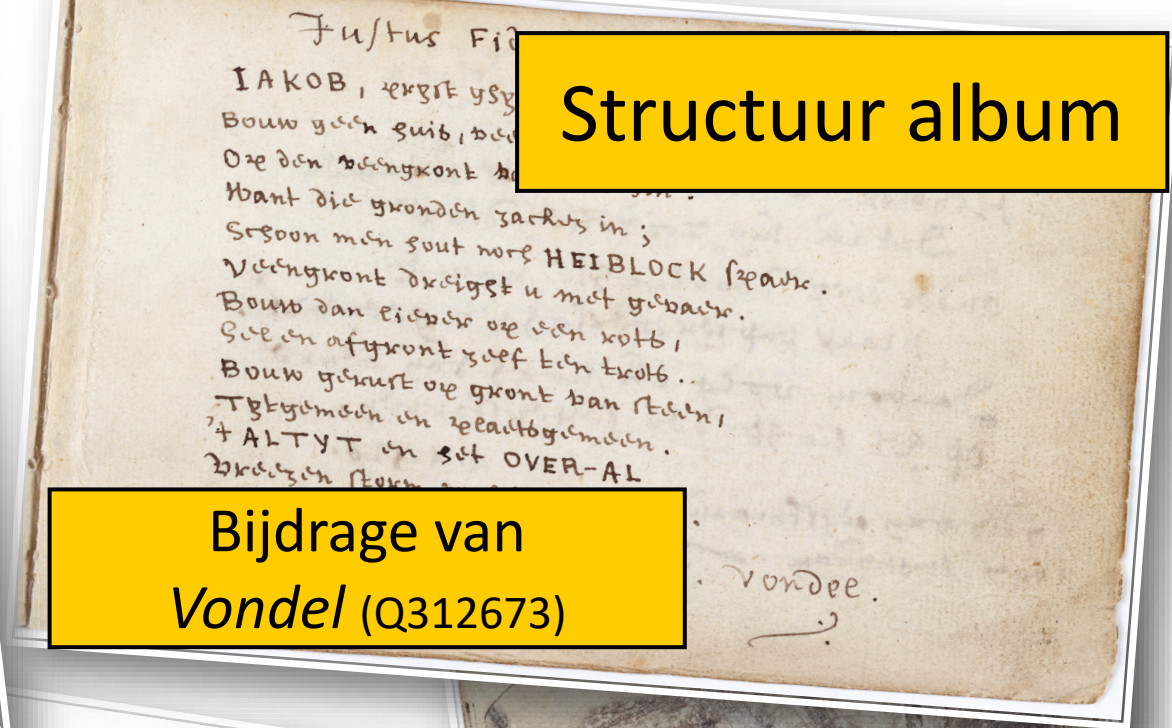 Justus Fid
Structuur album
IAKOB,
Bouw geen huis, vee
Op den veengront
Want die gronden zacken in;
Schoon men hout noch HEIBLOCK spaer.
Veengront dreight u met gevaer.
Bouw dan liever op een rots,
Hel en afgront zelf ten trots.
Bouw gerust op gront van steen,
Tytgemeen en plaetsgemeen.
'T ALTYT en het OVER-AL
Vreezen storm
Bijdrage van
Vondel (Q312673)
Vondel.